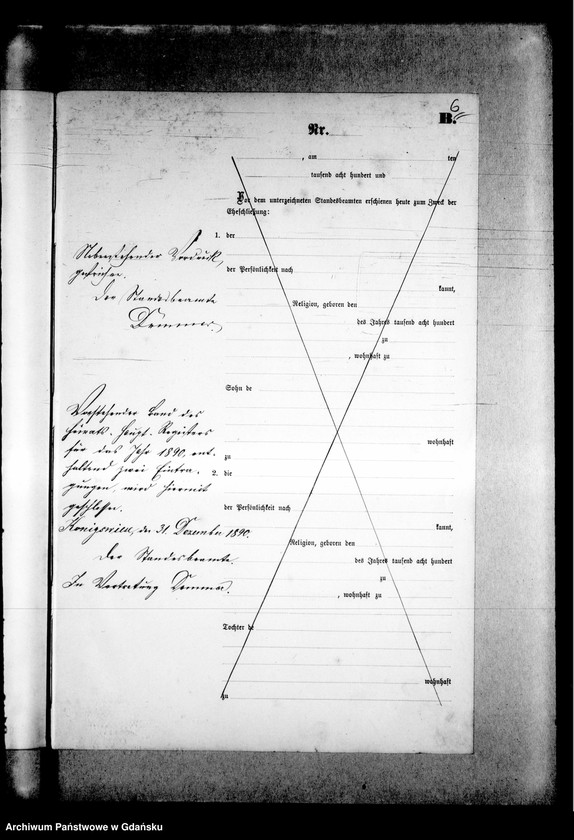 6
B.
Nr.
, am ten
tausend acht hundert und
Vor dem unterzeichneten Standesbeamten erschienen heute zum Zweck der
Eheschließung:
1. der
der Persönlichkeit nach
kannt,
Religion, geboren den
des Jahres tausend acht hundert
zu
, wohnhaft zu
Sohn de
wohnhaft
zu
2. die
der Persönlichkeit nach
kannt,
Religion, geboren den
des Jahres tausend acht hundert
zu
, wohnhaft zu
Tochter de
wohnhaft
zu
Nebenstehender Vordruck
gestrichen.
Der Standesbeamte
Vorstehender Band des
Heirats-Haupt-Registers
für das Jahr 1890, ent-
haltend zwei Eintra-
gungen, wird hiermit
geschlossen.
den 31. Dezember 1890.
Der Standesbeamte.
In Vertretung
Archiwum Państwowe w Gdańsku